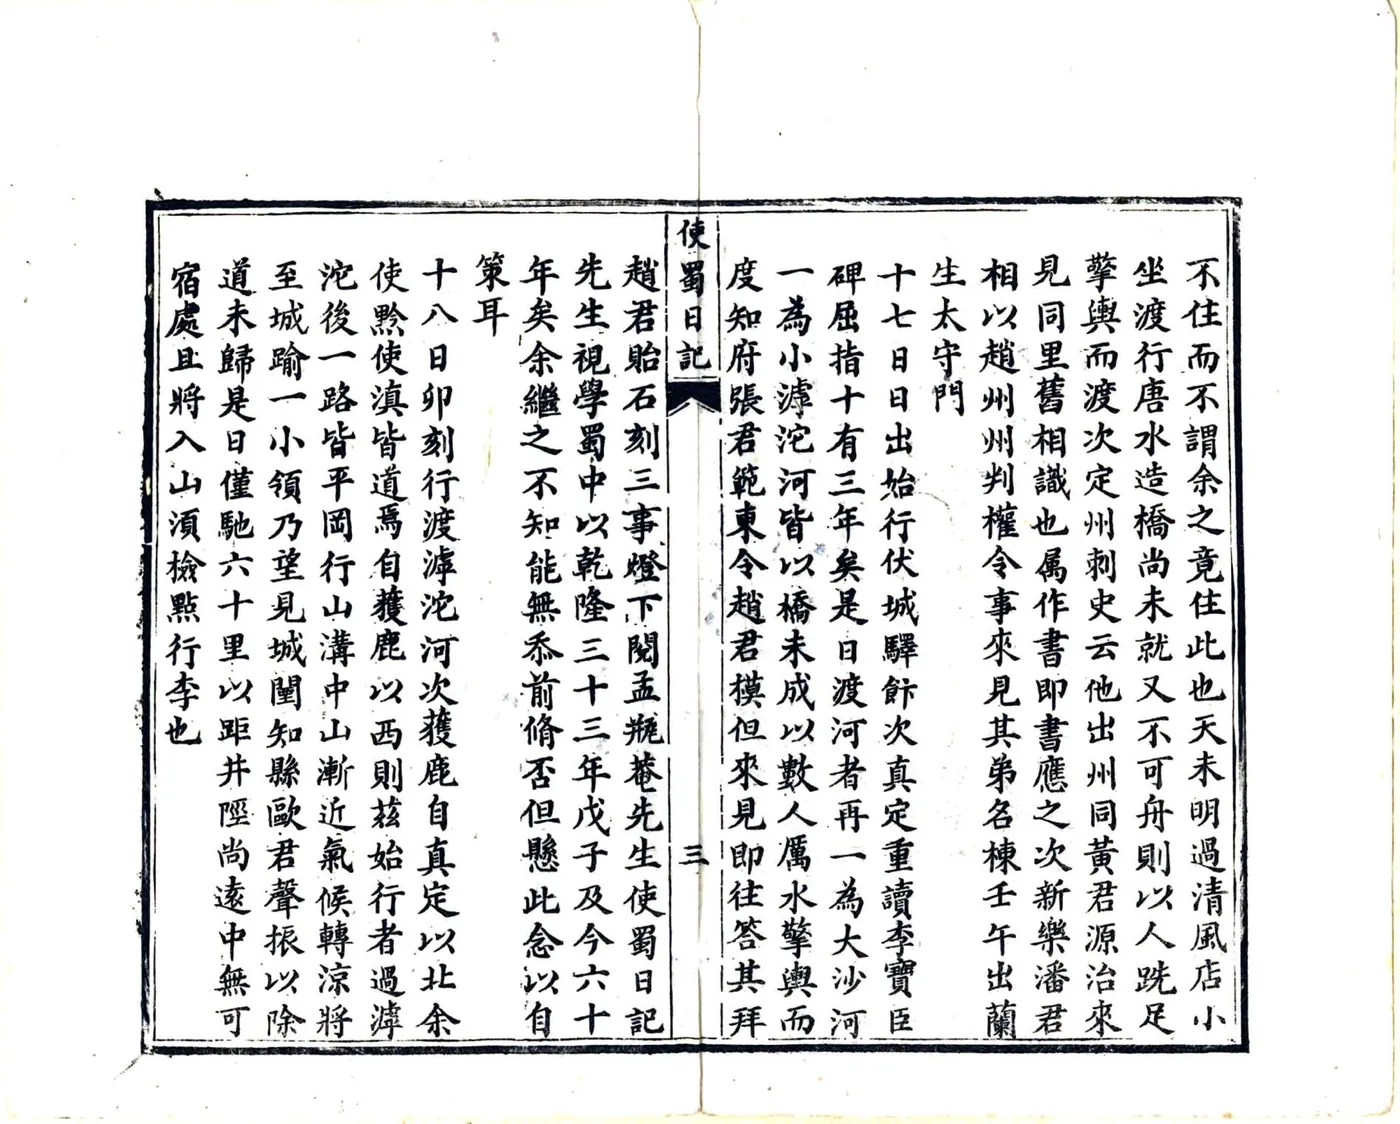 不住而不謂余之竟住此也天未明過清風店小
坐渡行唐水造橋尚未就又不可舟則以人跣足
擎輿而渡次定州刺史云他出州同黃君源治來
見同里舊相識也属作書即書應之次新樂潘君
相以趙州州判權令事來見其弟名棟壬午出蘭
生太守門
十七日日出始行伏城驛飰次真定重讀李寶臣
碑屈指十有三年矣是日渡河者再一為大沙河
一為小滹沱河皆以橋未成以數人厲水擎輿而
度知府張君範東令趙君模但來見即往答其拜
使蜀日記
三
趙君貽石刻三事燈下閱孟瓶菴先生使蜀日記
先生視學蜀中以乾隆三十三年戊子及今六十
年矣余繼之不知能無忝前脩否但懸此念以自
策耳
十八日卯刻行渡滹沱河次獲鹿自真定以北余
使黔使滇皆道焉自獲鹿以西則茲始行者過滹
沱後一路皆平岡行山溝中山漸近氣候轉涼將
至城踰一小領乃望見城闉知縣歐君聲振以除
道未歸是日僅馳六十里以距井陘尚遠中無可
宿處且將入山湏檢點行李也